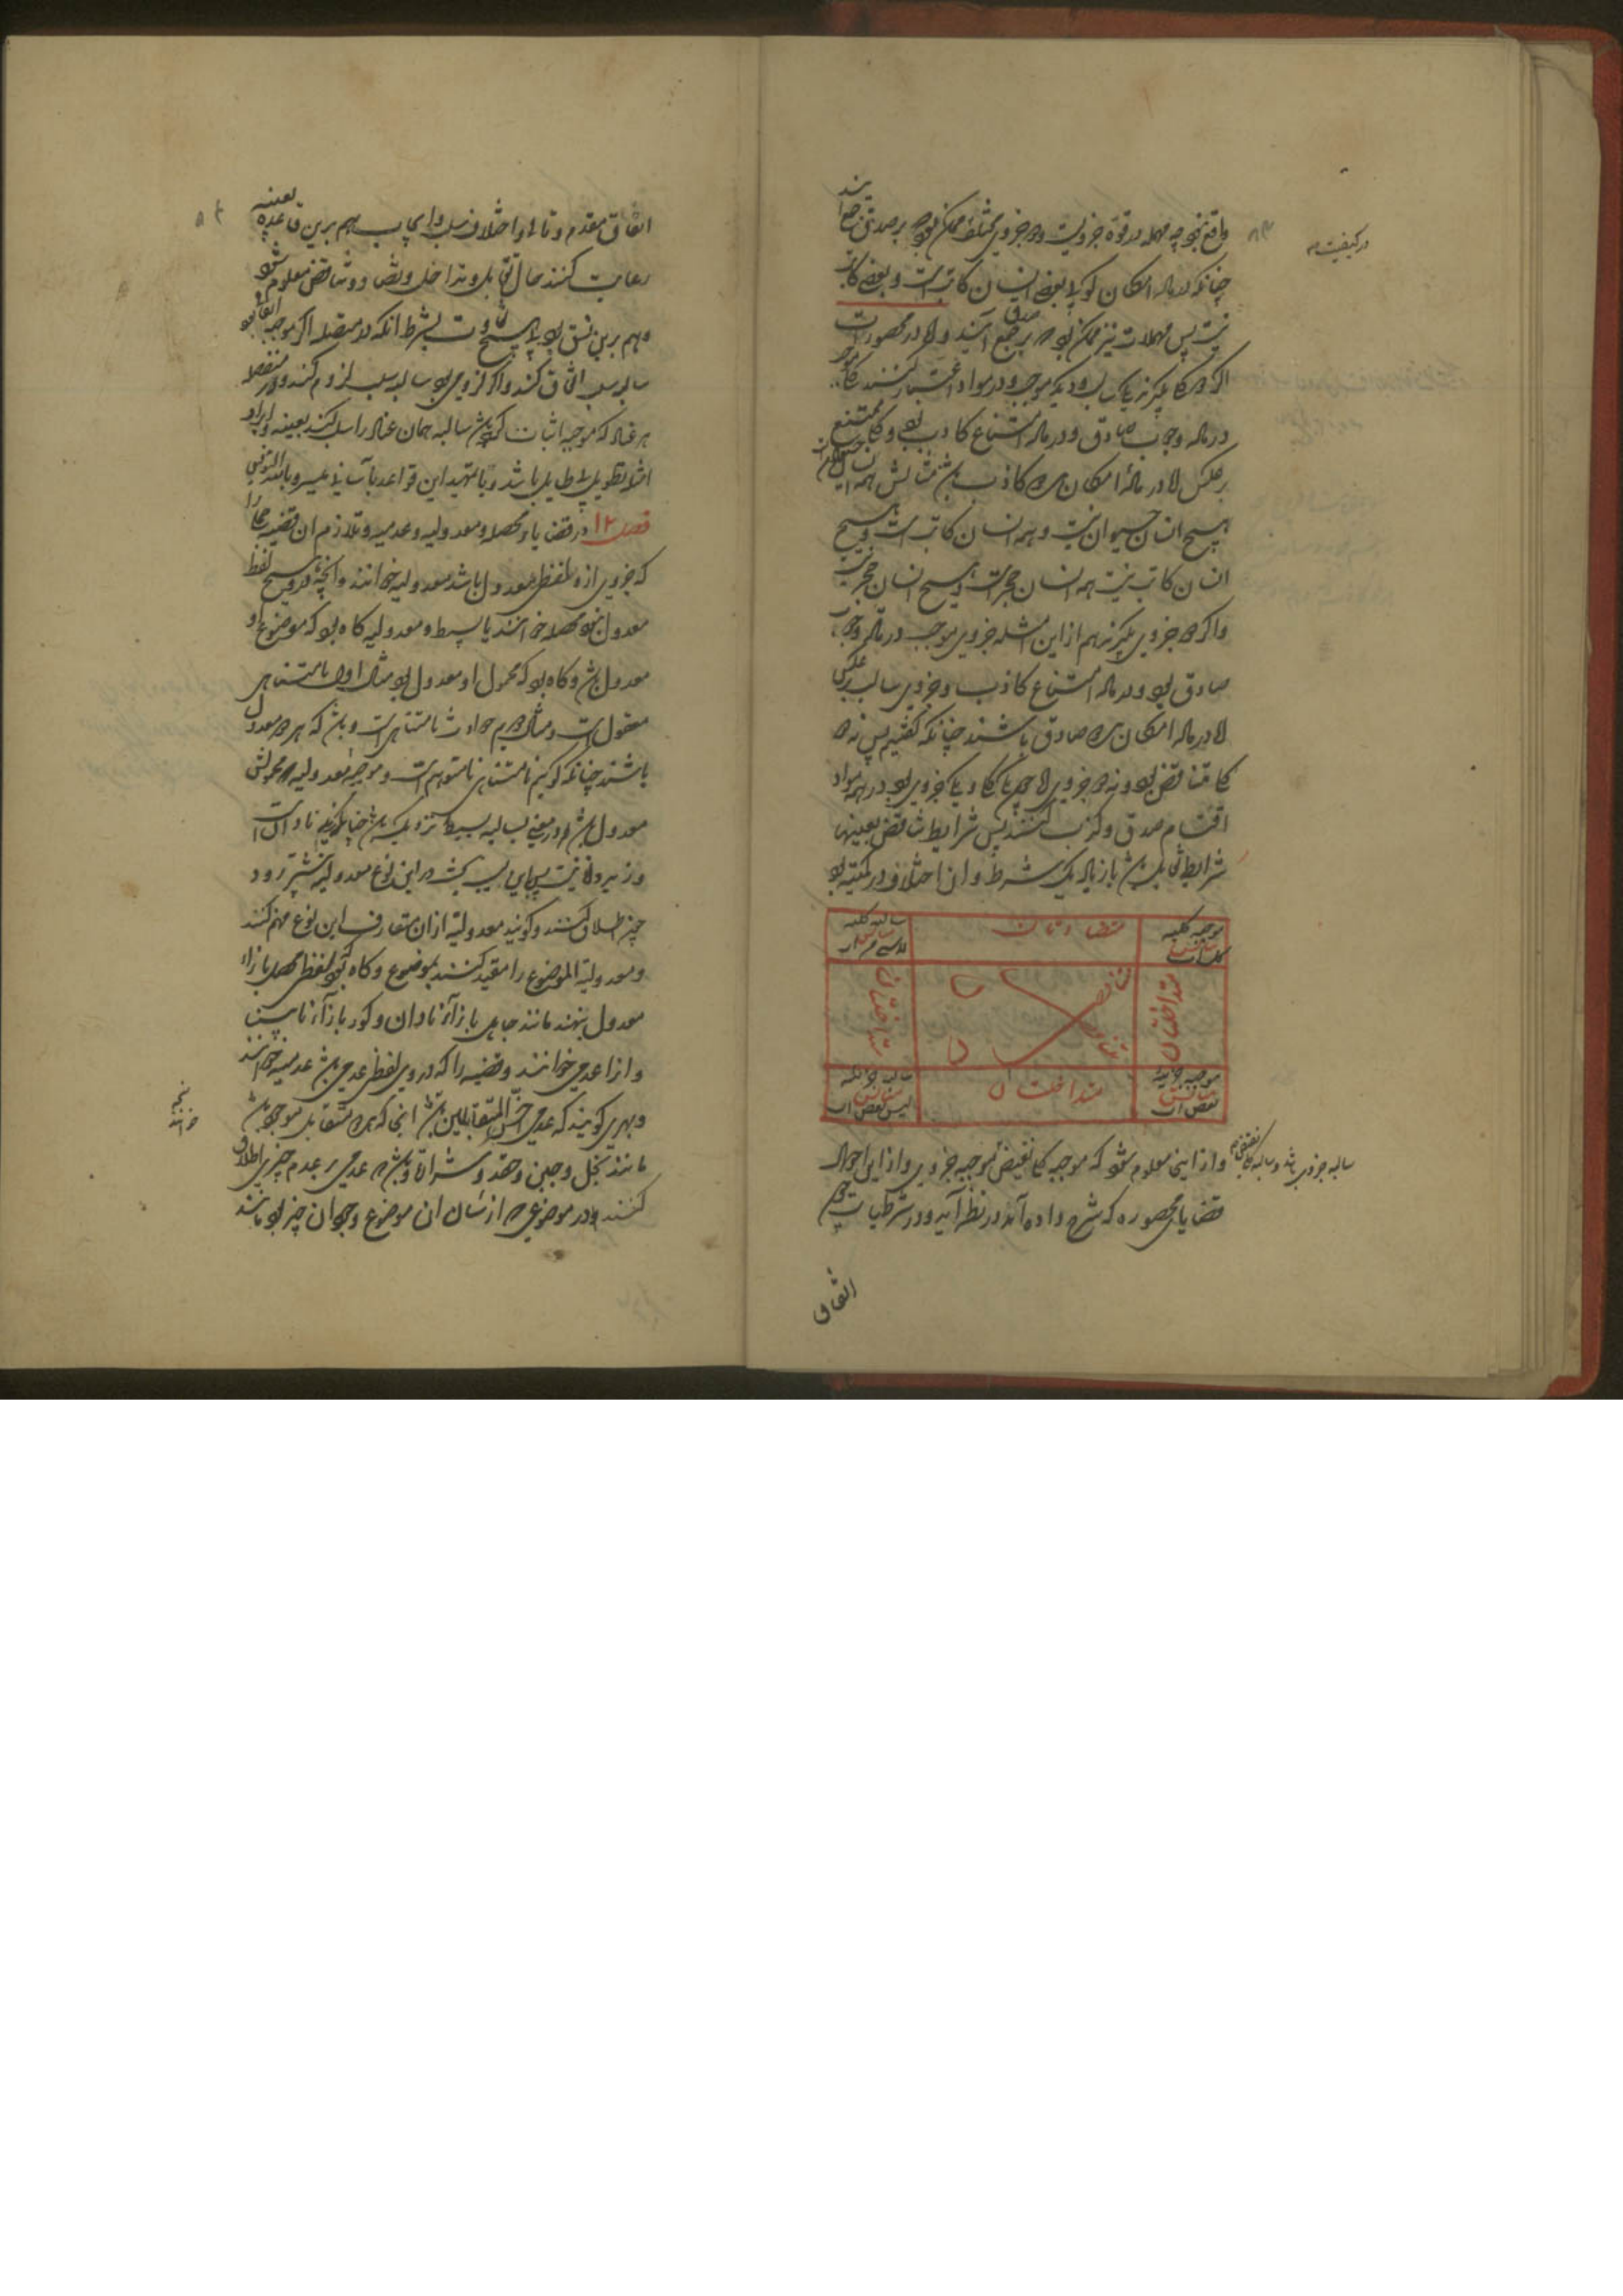 واقع نبود چه مهمله در قوة جزویست و دو جزوی مختلف ممکن بود که بر صدق جمع آیند
چنانکه در ماده امکان گویی بعضی انسان کاتب است و بعضی کاتب
نیست پس مهملات نیز ممکن بود که بر صدق جمع آیند و اما در محصورات
اگر دو کلی گیرند یکی سالب و دیگر موجب و در مواد اعتبار کنند کلی موجب
در ماده وجوب صادق و در ماده امتناع کاذب بود و کلی سالب
برعکس اما در مادهٔ امکان هر دو کاذب باشند مثالش همه انسان حیوان است
هیچ انسان حیوان نیست و همه انسان کاتب است و هیچ
انسان کاتب نیست همه انسان حجر است و هیچ انسان حجر نیست
و اگر دو جزوی گیرند هم از این امثله جزوی موجب در ماده وجوب
صادق بود و در ماده امتناع کاذب و جزوی سالب برعکس
اما در ماده امکان هر دو صادق باشند چنانکه گفتیم پس نه دو
کلی متناقض بود و نه دو جزوی اما چون یکی کلی و یکی جزوی بود در همه مواد
اقتسام صدق و کذب کنند پس شرایط تناقض بعینها
شرایط تقابل باشد بازیاده یک شرط و آن اختلاف در کمیت بود
موجبه کلیه
کل ا ب
متضادتان
سالبه کلیه
لا شی من ا ب
متداخلتان
متناقضتان
متداخلتان
موجبه جزئیه
بعض ا ب
متداخلتان
سالبه جزئیه
لیس بعض ا ب
و از اینجا معلوم شود که موجبه کلی نقیض موجبه جزوی و از این احوال
سالبه جزوی باشد و سالبه کلی نقیض
قضایاء محصوره که شرح داده آمد در نظر آید و در شرطیات چون
اتفاق
در کیفیت
۸۳
۸۴
اتفاق مقدم و تالی و اختلاف سلب و ایجاب هم برین قاعده بعینه
رعایت کنند حال تقابل و تداخل و تضاد و تناقض معلوم شود
و هم برین نسق بود بی هیچ تفاوت بشرط آنکه در متصله اگر موجبه اتفاقی بود
سالبه سلب اتفاق کند و اگر لزومی بود سالبه سلب لزوم کند و در منفصله
هر عناد که موجبه اثبات کرده باشد سالبه همان عناد را سلب کند بعینه و ایراد
امثله تطویلی بی طایل باشد و با تمهید این قواعد بآسانی میسر و بالله التوفیق
فصل ۱۲ در قضایاء محصله و معدولیه و عدمیه و تلازم ان قضیه‌ها را
که جزوی ازو لفظی معدول باشد معدولیه خوانند و آنچه درو هیچ لفظ
معدول نبود محصله خوانند یا بسیط و معدولیه گاه بود که موضوع او
معدول باشد و گاه بود که محمول او معدول بود مثال اول نامتناهی
معقول است و مثال دوم حوادث نامتناهی است و باشد که هر دو معدول
باشند چنانکه گوئیم نامتناهی نامتوهم است و موجبه معدولیه که محمولش
معدول باشد در معنی بسالبه بسیطه نزدیک باشد چنانکه زید نادان است
و زید دانا نیست و بجای سلب باشد در این نوع معدولیه بیشتر رود
چون اطلاق کنند و گویند معدولیة از ان متعارف این نوع فهم کنند
و معدولیة الموضوع را مقید کنند بموضوع و گاه بود که لفظی محصل بازاء
معدول بنهند مانند جاهل بازآء نادان و کور بازآء نابینا
و از اعدمی خوانند و قضیه را که دروی لفظی عدمی باشد عدمیه خوانند
و بهری گویند که عدمی اخس المتقابلین باشد انجا که هر دو متقابل موجود باشند
مانند بخل و جبن و حقد و شرارة و باشد که عدمی بر عدم چیزی اطلاق
کنند و در موضوعی که از شان ان موضوع وجود ان چیز بود مانند